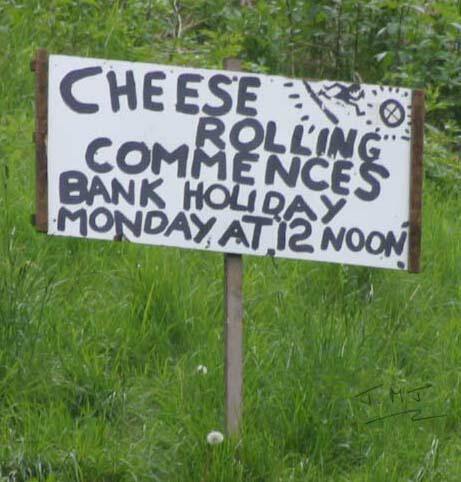 CHEESE
ROLLING
COMMENCES
BANK HOLIDAY
MONDAY AT 12 NOON
JMJ